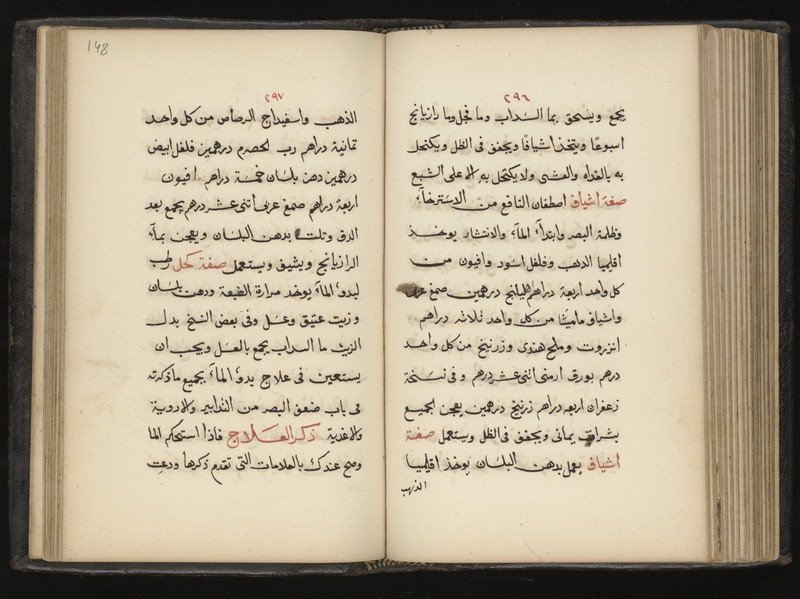 ٢٩٦
يجمع ويسحق بما السداب وما فجل وما رازيانج
اسبوعًا ويتخذ اشيافًا ويجفف فى الظل ويكتحل
به بالغداه والعشى ولا يكتحل به الا على الشبع
صفة اشياف اصطفان النافع من الاسترخآء
وظلمة البصر وابتدآء المآء والانتشار يوخذ
اقليميا الذهب وفلفل اسود وافيون من
كل واحد اربعة دراهم اهليلج درهمين صمغ عربى
واشياف ماميثا من كل واحد ثلاثه دراهم
انزروت وملح هندى وزرنيخ من كل واحد
درهم بورق ارمنى اثنى عشر درهم وفى نسخة
زعفران اربعه دراهم زرنيخ درهمين يعجن الجميع
بشراب يمانى ويجفف فى الظل ويستعمل صفة
اشياف يعمل بدهن البلسان يوخذ اقليميا
الذهب
148
٢٩٧
الذهب واسفيداج الرصاص من كل واحد
ثمانية دراهم رب الحصرم درهمين فلفل ابيض
درهمين دهن بلسان خمسة دراهم افيون
اربعة دراهم صمغ عربى اثنى عشر درهم يجمع بعد
الدق وتلت بدهن البلسان ويعجن بمآء
الرازيانج ويشيف ويستعمل صفة كحل رطب
لبدوء المآء يوخذ مرارة الضبعة ودهن بلسان
وزيت عتيق وعسل وفى بعض النسخ بدل
الزيت ما السداب يجمع بالعسل ويجب ان
يستعين فى علاج بدوء المآء بجميع ما ذكرته
فى باب ضعف البصر من التدابير والادوية
والاغذية ذكر العلاج فاذا استحكم الما
وصح عندك بالعلامات التى تقدم ذكرها ودعت